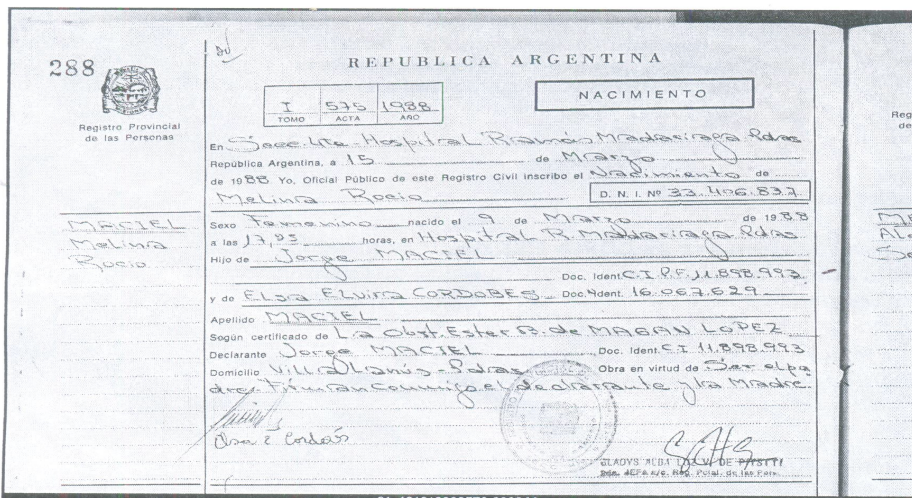 288
Registro Provincial
de las Personas
MACIEL
Melina
Rocio
REPUBLICA ARGENTINA
NACIMIENTO
I 575 1988
TOMO ACTA AÑO
En Secc. 4ta. Hospital Ramón Madariaga Pdas
República Argentina, a 15 de Marzo
de 1988 Yo, Oficial Público de este Registro Civil inscribo el Nacimiento de
Melina Rocio D. N. I. Nº 33.406.837
Sexo Femenino nacido el 9 de Marzo de 1988
a las horas, en Hospital R. Madariaga Pdas
Hijo de Jorge MACIEL
Doc. Ident. C.I.P.F. 11.898.993
y de Elsa Elvira CORDOBES Doc. Ident. 16.067.629
Apellido MACIEL
Según certificado de La Obst. Ester B. de MAGAN LOPEZ
Declarante Jorge MACIEL Doc. Ident. C.I 11.898.993
Domicilio Villa Lanús - Pdas Obra en virtud de Ser el pa
dre. Firman conmigo el declarante y la Madre.
Elsa E
GLADYS ALBA DE
Reg
de